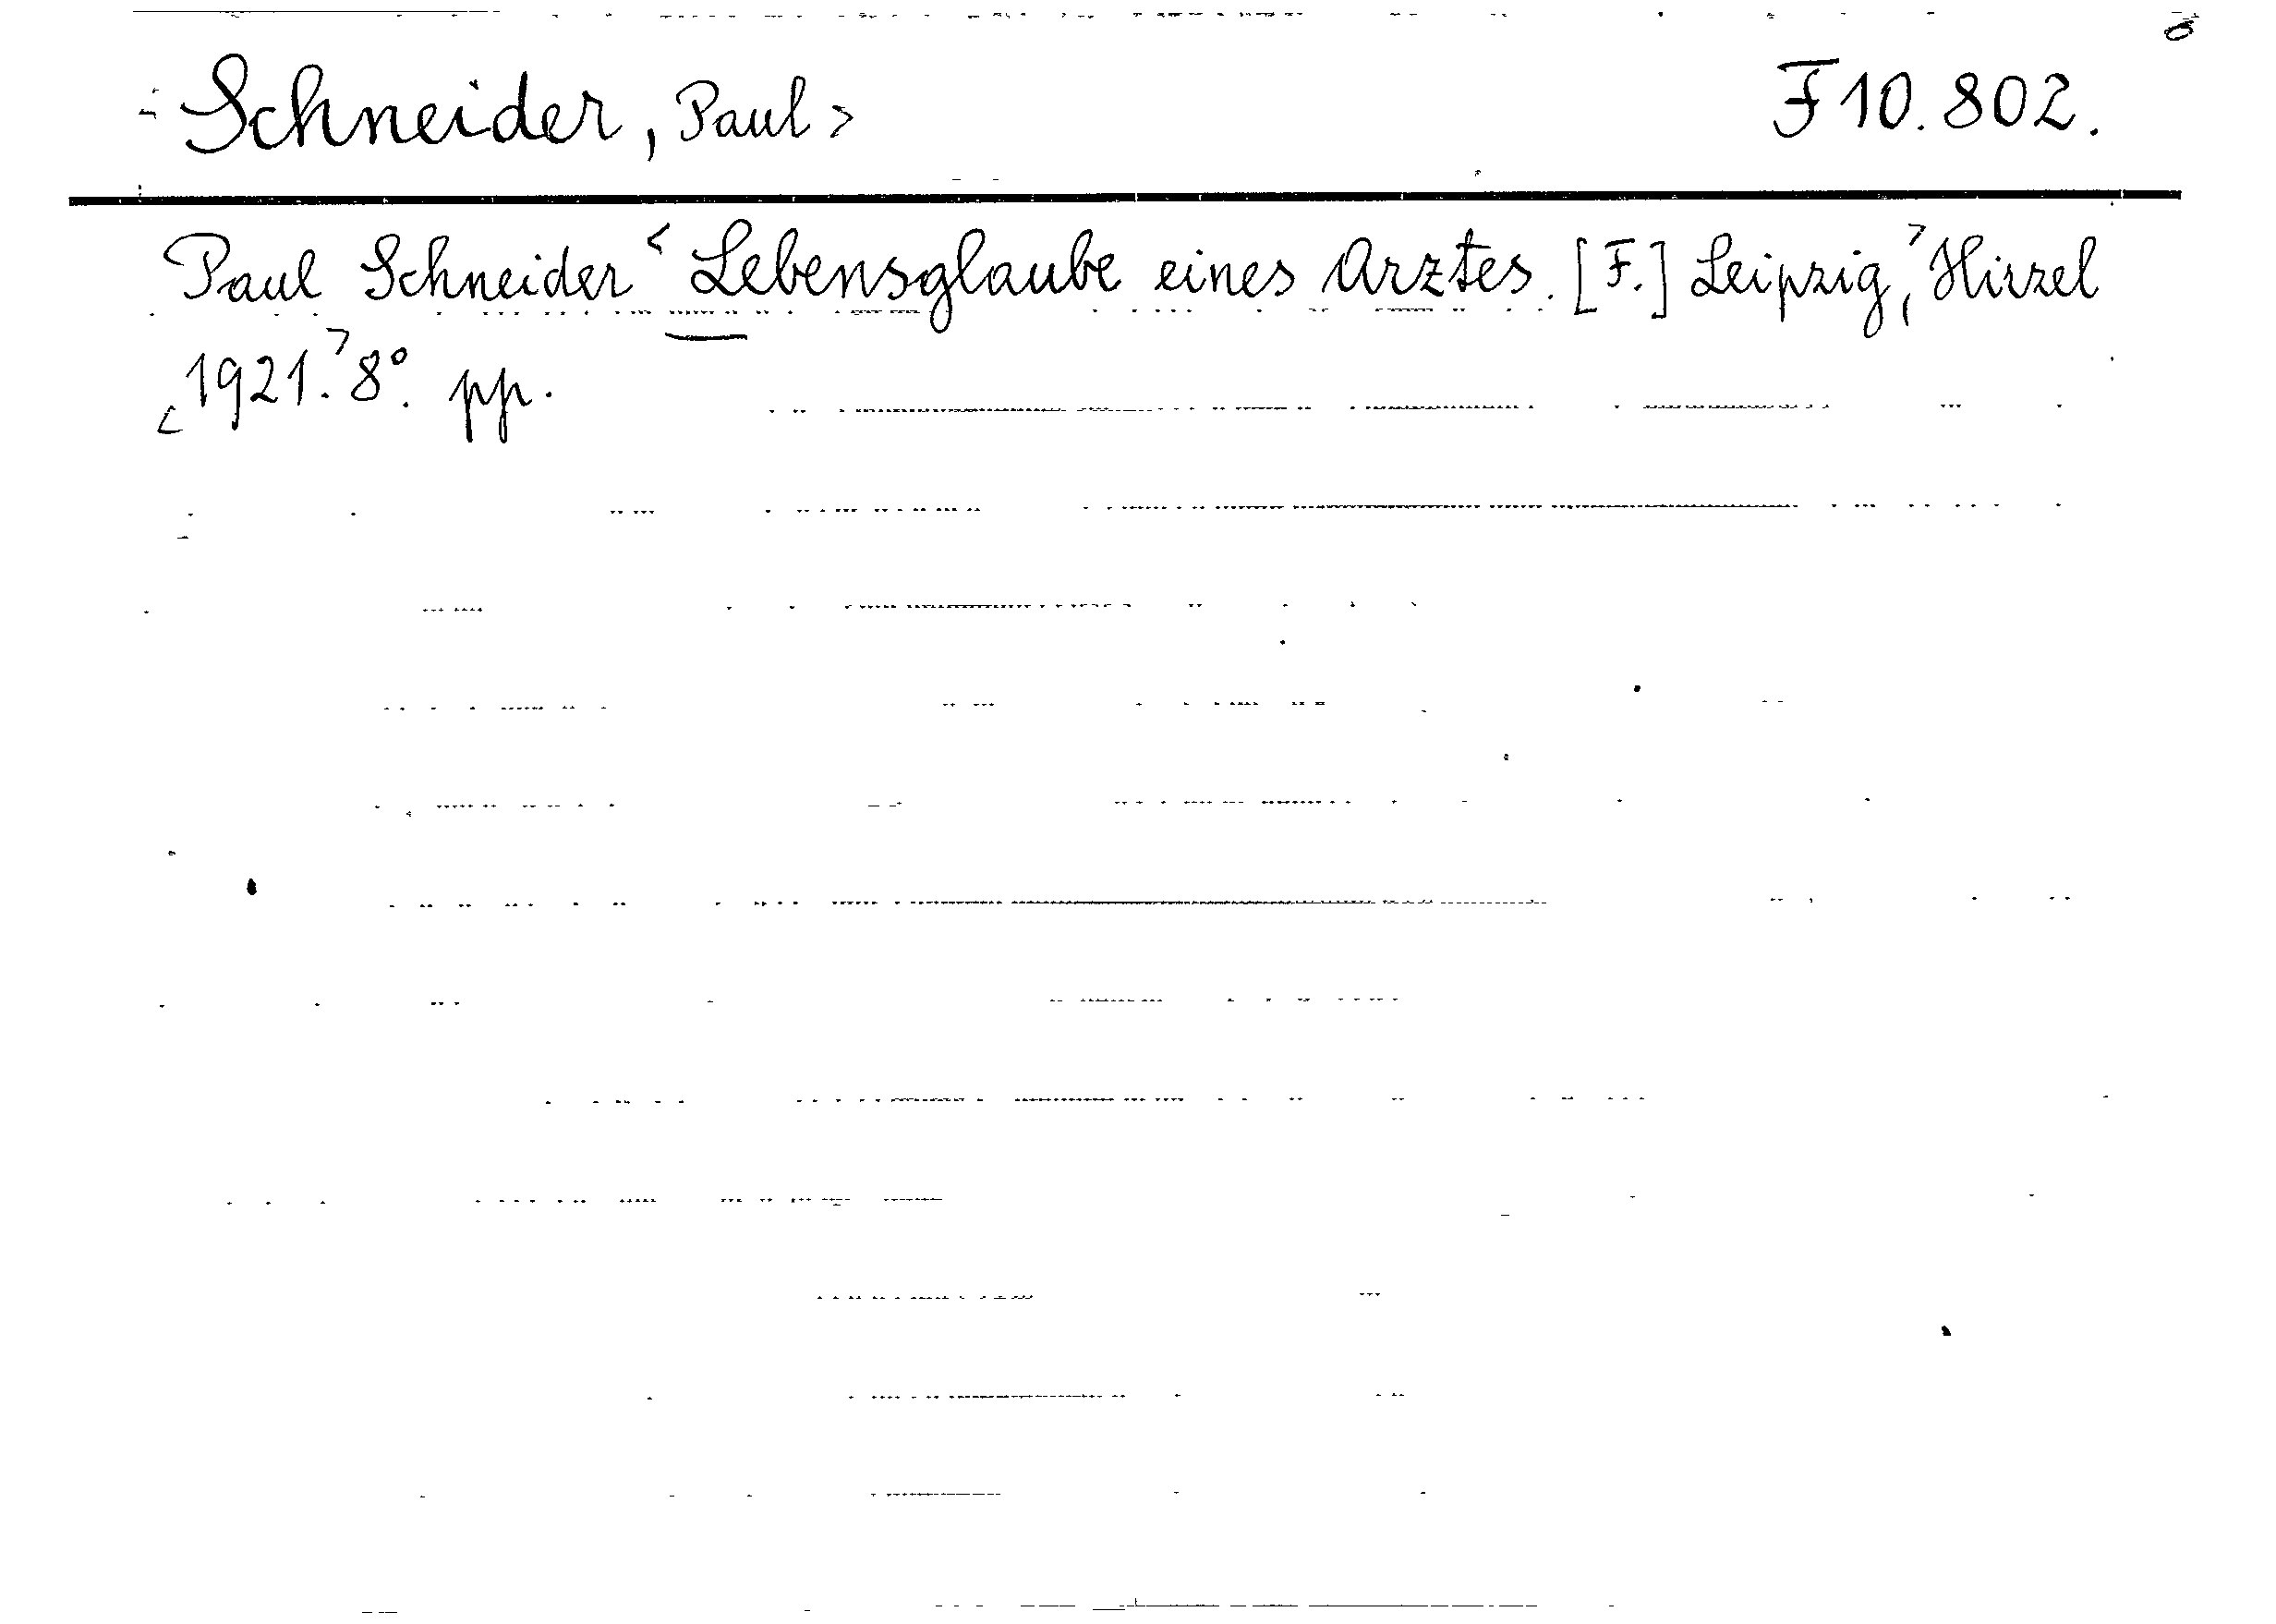 Schneider, Paul> F 10.802.
Paul Schneider < Lebensglaube eines Arztes. [F.] Leipzig,> Hirzel
<1921.> 8°. pp.